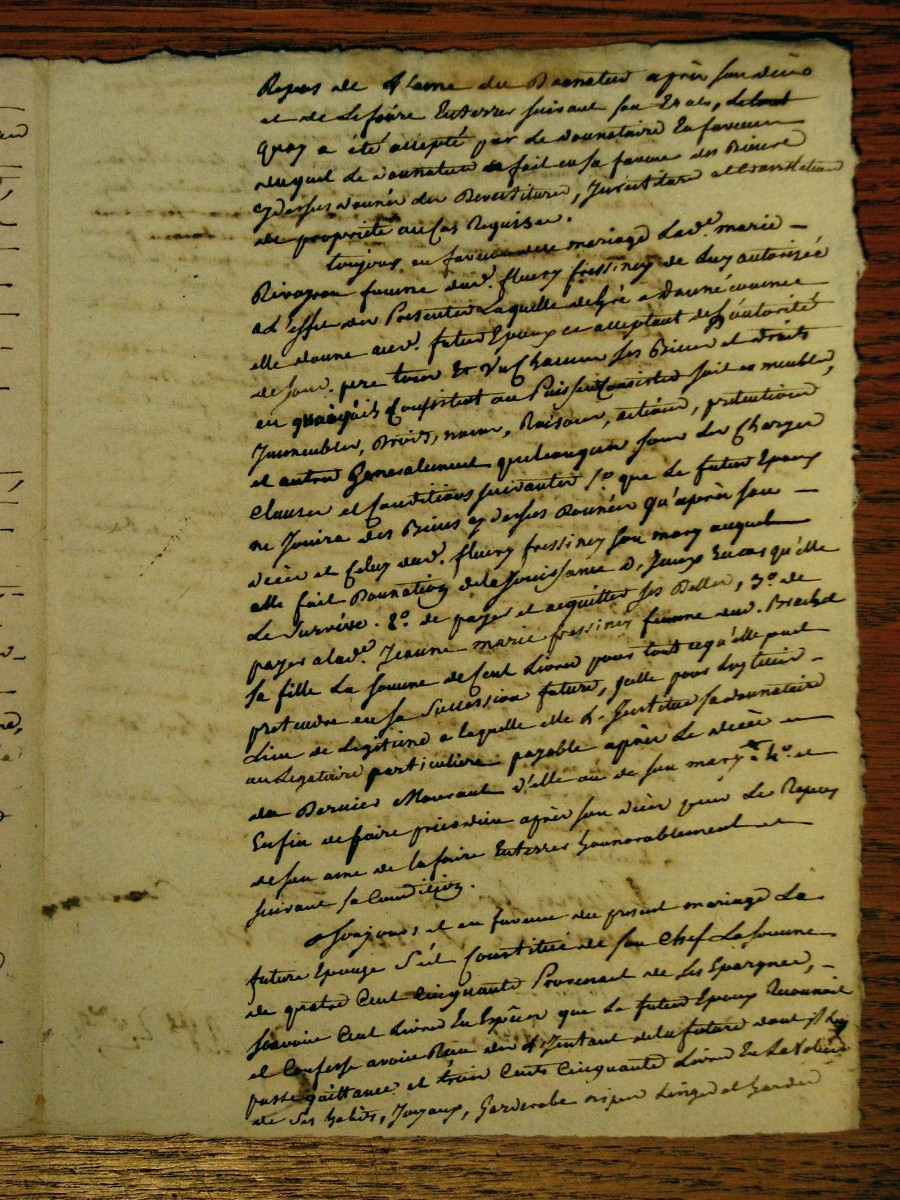 Repos de L'ame du Donateur après son décès
et de Le faire Enterrer suivant son Etat, de tout
quoy a été accepté par Le donnataire En faveur
duquel Le donnateur se fait en sa faveur des Biens
cydessus donnés des Revestiture, Investiture et Constitution
de propriété au Cas Requises.
toujours en faveur du mariage Lad.e marie
Rivoyron femme dud. fleury fressiney de Luy autorisée
a L'effet des Presentes Laquelle de Gré a donné comme
elle donne aud. futur Epoux ce acceptant de L'autorité
de Sond. pere tous Et Un Chacun Ses Biens et droits
en quoy qu'ils Consistent ou Puissent Consister soit en meubles,
Immeubles, Droits, noms, Raisons, actions, pretentions
et autres Generalement quelconques sous Les Charges
Clauses et Conditions suivantes 1.o que Le futur Epoux
ne Jouira des Biens cydessus donnés qu'après son
décès et Celuy dud. fleury fressiney son mary auquel
elle fait Donnation de la Jouissance d'Iceux En cas qu'elle
Le Survive. 2.o de payer et acquitter Ses Dettes, 3.o de
payer a lad.e Jeanne marie fressiney femme dud. Brachet
Sa fille La somme de Cent Livres pour tout ce qu'elle peut
pretendre en Sa Succession future, qu'elle pour Luy tenir
Lieu de Legitime a laquelle elle L'Institue Sa donnataire
ou Legataire particuliere payable après Le décès
du Dernier Mourant d'elle ou de Son mary 4.o et
Enfin de faire prier dieu après Son décès pour Le Repos
de Son ame de la faire Enterrer honnorablement
suivant Sa Condition.
Toujours et en faveur du present mariage La
future Epouse S'est Constituée de Son Chef La Somme
de quatre Cent Cinquante Provenant de Ses Epargnes,
Scavoir Cent Livres En Espèces que Le futur Epoux Reconnoit
et Confesse avoir Reçu dès L'Instant de la future dont il Luy
passe quittance et trois Cents Cinquante Livres En La Valeur
de Ses habits, Joyaux, Garderobe Linges et hardes